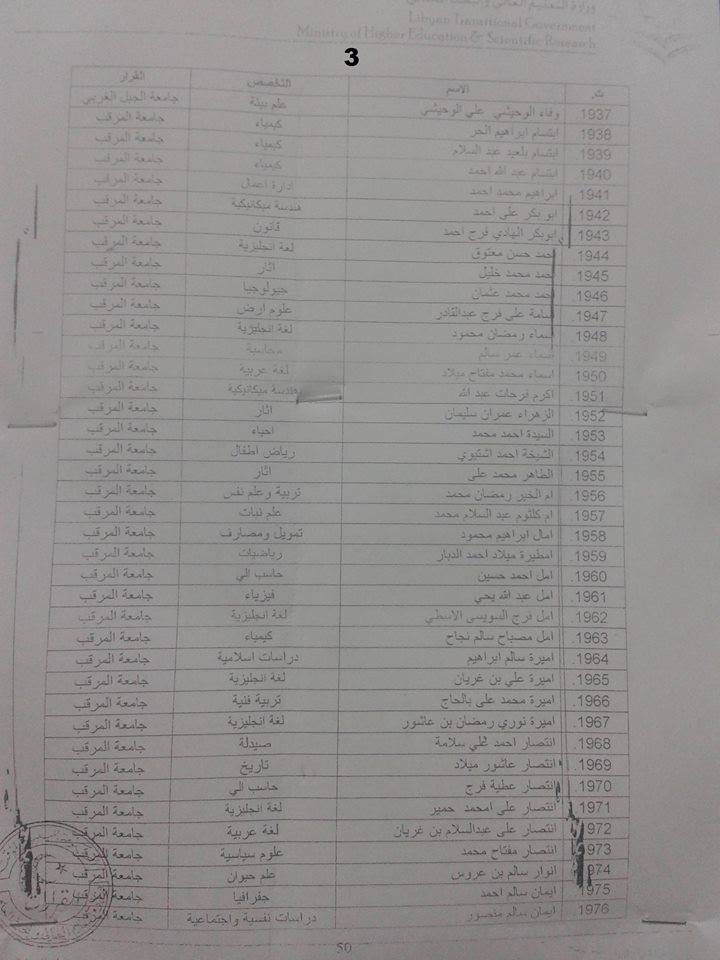 وزارة التعليم العالي
Libyan Transitional Government
Ministry of Higher Education & Scientific Research
3
ت. الاسم التخصص القرار
1937. وفاء الوحيشي علي الوحيشي علم بيئة جامعة الجبل الغربي
1938. ابتسام ابراهيم الحر كيمياء جامعة المرقب
1939. ابتسام بلعيد عبد السلام كيمياء جامعة المرقب
1940. ابتسام عبد الله احمد كيمياء جامعة المرقب
1941. ابراهيم محمد احمد ادارة اعمال جامعة المرقب
1942. ابو بكر على احمد هندسة ميكانيكية جامعة المرقب
1943. ابوبكر الهادي فرج احمد قانون جامعة المرقب
1944. احمد حسن معتوق لغة انجليزية جامعة المرقب
1945. احمد محمد خليل اثار جامعة المرقب
1946. احمد محمد عثمان جيولوجيا جامعة المرقب
1947. اسامة على فرج عبدالقادر علوم ارض جامعة المرقب
1948. اسماء رمضان محمود لغة انجليزية جامعة المرقب
1949. اسماء عمر سالم محاسبة جامعة المرقب
1950. اسماء محمد مفتاح ميلاد لغة عربية جامعة المرقب
1951. اكرم فرحات عبد الله هندسة ميكانيكية جامعة المرقب
1952. الزهراء عمران سليمان اثار جامعة المرقب
1953. السيدة احمد محمد احياء جامعة المرقب
1954. الشيخة احمد اشتيوي رياض اطفال جامعة المرقب
1955. الطاهر محمد على اثار جامعة المرقب
1956. ام الخير رمضان محمد تربية وعلم نفس جامعة المرقب
1957. ام كلثوم عبد السلام محمد علم نبات جامعة المرقب
1958. امال ابراهيم محمود تمويل ومصارف جامعة المرقب
1959. امطيرة ميلاد احمد الدبار رياضيات جامعة المرقب
1960. امل احمد حسين حاسب الي جامعة المرقب
1961. امل عبد الله يحي فيزياء جامعة المرقب
1962. امل فرج السويسى الاسطي لغة انجليزية جامعة المرقب
1963. امل مصباح سالم نجاح كيمياء جامعة المرقب
1964. اميرة سالم ابراهيم دراسات اسلامية جامعة المرقب
1965. اميرة علي بن غربان لغة انجليزية جامعة المرقب
1966. اميرة محمد على بالحاج تربية فنية جامعة المرقب
1967. اميرة نوري رمضان بن عاشور لغة انجليزية جامعة المرقب
1968. انتصار احمد علي سلامة صيدلة جامعة المرقب
1969. انتصار عاشور ميلاد تاريخ جامعة المرقب
1970. انتصار عطية فرج حاسب الي جامعة المرقب
1971. انتصار على امحمد حمير لغة انجليزية جامعة المرقب
1972 انتصار على عبدالسلام بن غربان لغة عربية جامعة المرقب
1973 انتصار مفتاح محمد علوم سياسية جامعة المرقب
1974 انوار سالم بن عروس علم حيوان جامعة المرقب
1975 ايمان سالم احمد جغرافيا جامعة المرقب
1976. ايمان سالم منصور دراسات نفسية واجتماعية جامعة المرقب
50